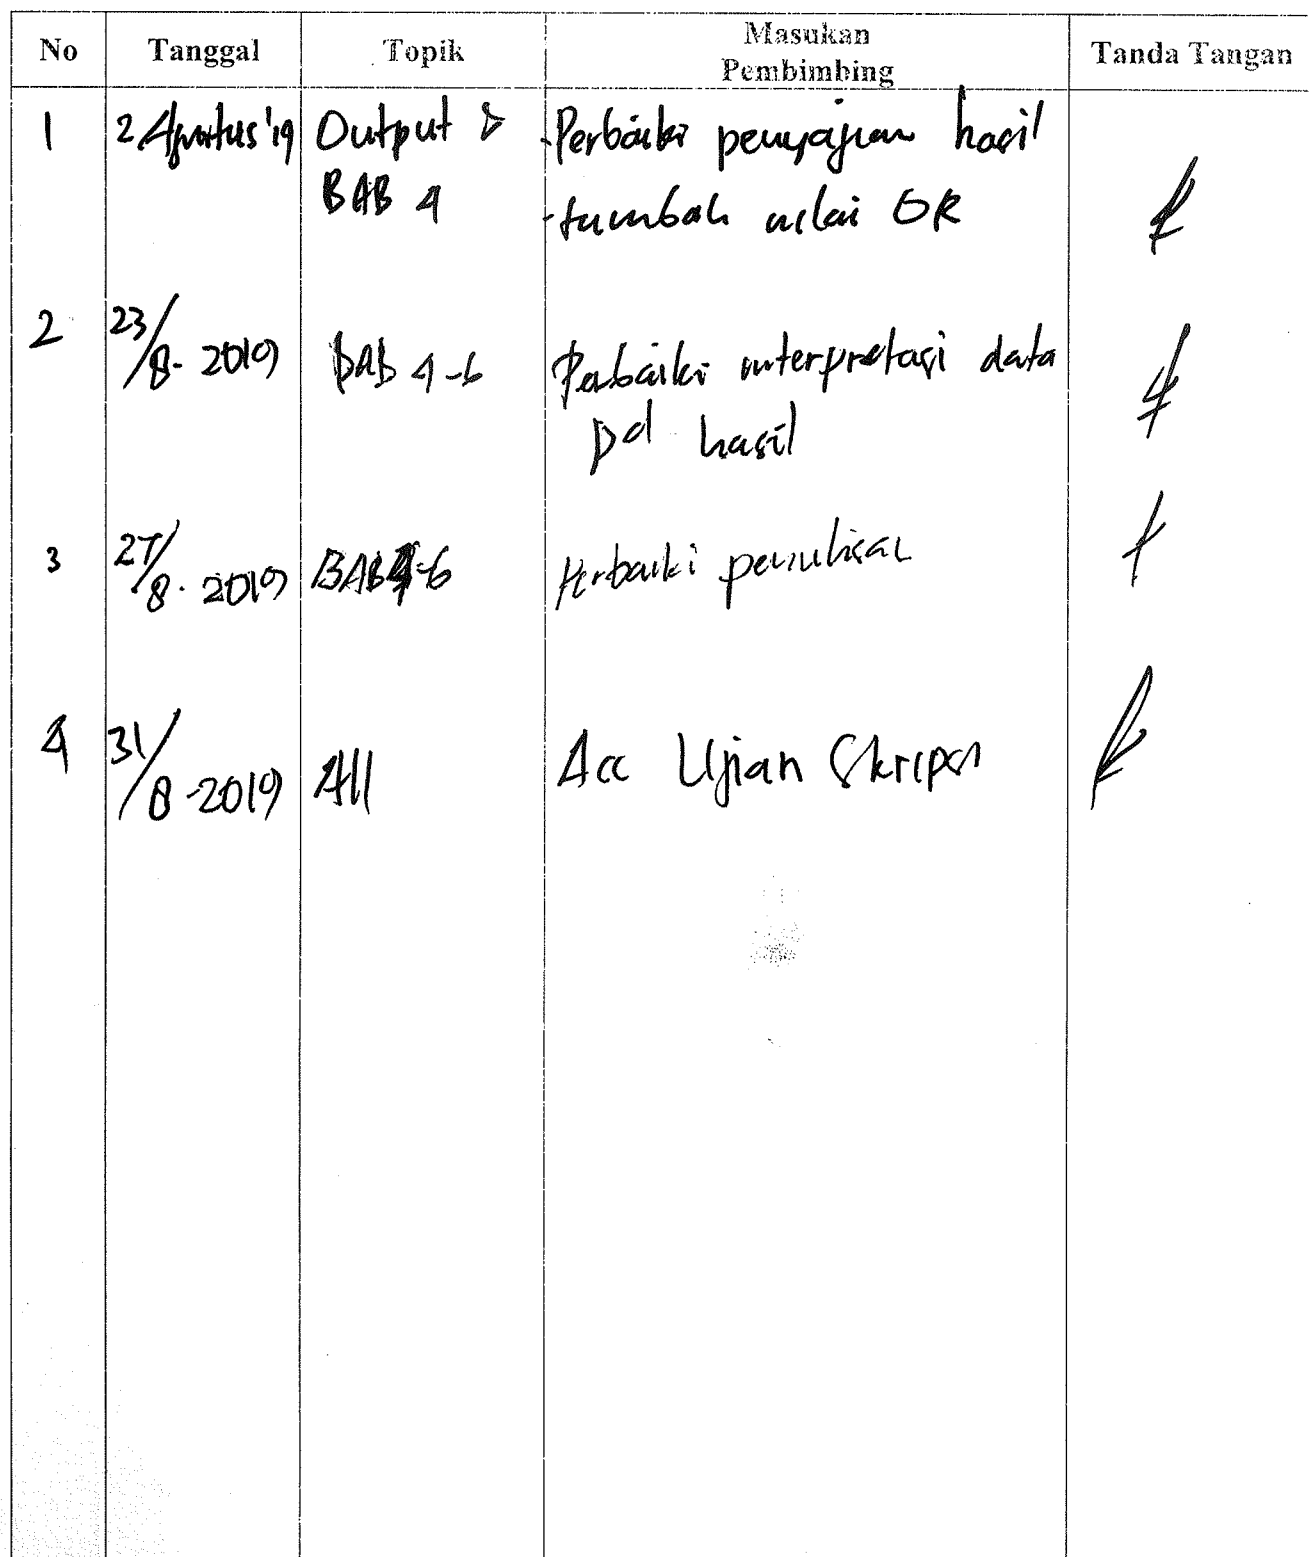 No Tanggal Topik Masukan Pembimbing Tanda Tangan
1 2 Agustus '19 Output & - Perbaiki penyajian hasil
BAB 4 - tambah nilai OR
2 23/8-2019 Bab 4-6 Perbaiki interpretasi data
pd hasil
3 27/8-2019 BAB 4-6 Perbaiki penulisan
4 31/8-2019 All Acc Ujian Skripsi